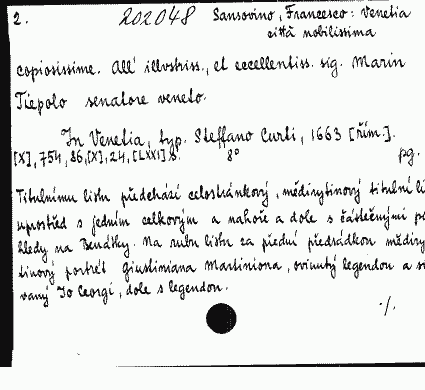 2. 202048 Sansovino, Francesco: Venetia
città nobilissima
copiosissime. All' illvstriss., et eccellentiss. sig. Marin
Tiepolo senatore veneto.
In Venetia, typ. Steffano Curti, 1663 [řím.].
[X], 754, 86, [X], 24, [LXXI] S. 8° pg.
Titulnímu listu předchází celostránkový, mědirytinový titulní li
uprostřed s jedním celkovým a nahoře a dole s částečnými po
hledy na Benátky. Na rubu listu za přední předsádkou mědiry
tinový portrét Giustiniana Martiniona, ovinutý legendou a
vaný Io Georgi, dole s legendou.
./.